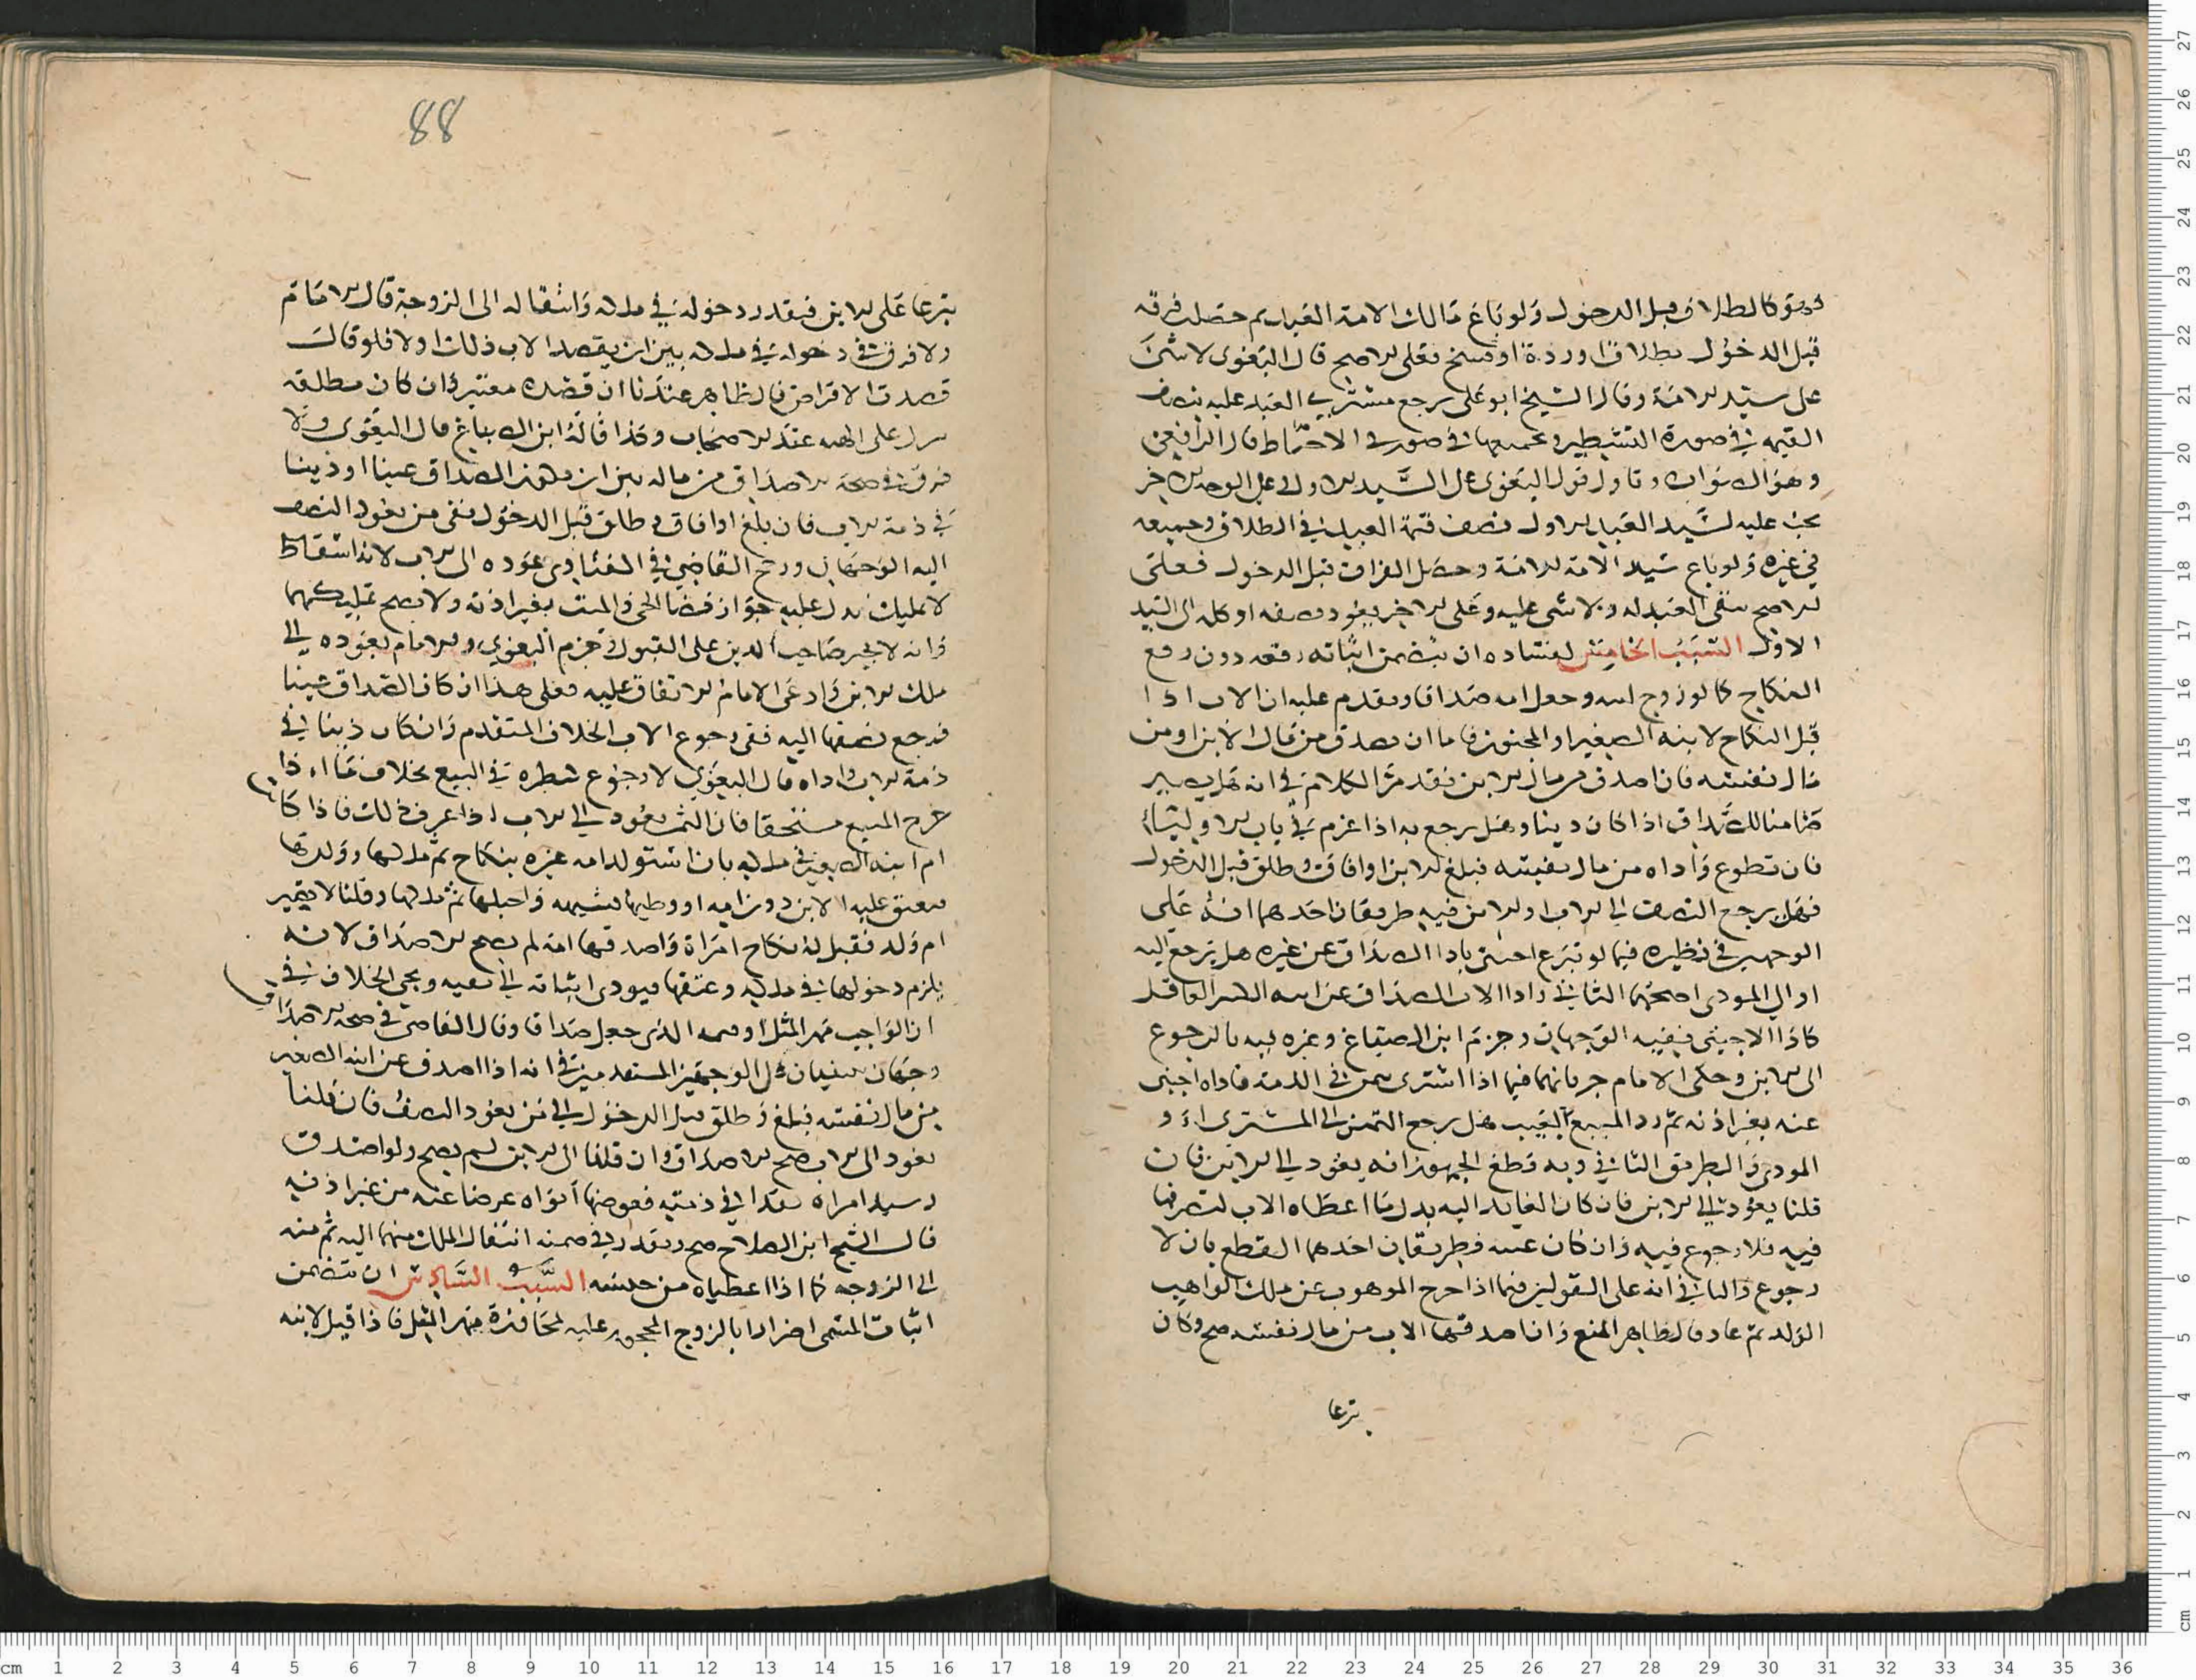 فهو كالطلاق قبل الدخول ولو باع مالك الامة العبد ثم حصلت فرقة
قبل الدخول بطلاق او ردة او فسخ فعلى الاصح قال البغوى لا شى
على سيد الامة وقال الشيخ ابو على يرجع مشترى العبد عليه بنصف
القيمة فى صورة التشطير وجميعها فى صورة الاحباط قال الرافعى
وهو الصواب وتاول قول البغوى على السيد الاول وعلى الوجه الاخر
يجب عليه لسيد العبد الاول نصف قيمة العبد فى الطلاق وجميعه
فى غيره ولو باع سيد الامة الامة وحصل الفراق قبل الدخول فعلى
الاصح يبقى العبد له ولا شى عليه وعلى الاخر يعود نصفه او كله الى السيد
الاول السبب الخامس لفساده ان يتضمن اثباته رفعه دون رفع
النكاح كما لو زوج ابنه وجعل امه صداقا وتقدم عليه ان الاب اذا
قبل النكاح لابنه الصغير او المجنون فاما ان يصدق من مال الابن او من
مال نفسه فان اصدق من مال الابن فقد مر الكلام فى انه هل يصير
ضامنا للصداق اذا كان دينا وهل يرجع به اذا غرم فى باب الاوليا
فان تطوع واداه من مال نفسه فبلغ الابن او افاق وطلق قبل الدخول
فهل يرجع النصف الى الاب او الابن فيه طريقان احدهما انه على
الوجهين فى نظيره فيما لو تبرع اجنبى باداا الصداق عن غيره هل يرجع اليه
او الى المودى اصحهما الثانى واداا الاب الصداق عن ابنه الكبير العاقل
كاداا الاجنبى ففيه الوجهان وجزم ابن الصباغ وغيره فيه بالرجوع
الى الابن وحكى الامام جريانهما فيما اذا اشترى بثمن فى الذمة فاداه اجنبى
عنه بغير اذنه ثم رد المبيع بالعيب هل يرجع الثمن الى المشترى او
المودى والطريق الثانى وبه قطع الجمهور انه يعود الى الابن فان
قلنا يعود الى الابن فان كان العايد اليه بدل ما اعطاه الاب لتصرفها
فيه فلا رجوع فيه وان كان عينه فطريقان احدهما القطع بان لا
رجوع والثانى انه على القولين فيما اذا خرج الموهوب عن ملك الواهب
الولد ثم عاد فالظاهر المنع وان اصدقها الاب من مال نفسه صح وكان
تبرعا
88
تبرعا على الابن فيقدر دخوله فى ملكه وانتقاله الى الزوجة قال الامام
ولا فرق فى دخوله فى ملكه بين ان يقصد الاب ذلك او لا فلو قال
قصدت الاقراض فالظاهر عندنا ان قصده معتبر وان كان مطلقه
ينزل على الهبة عند الاصحاب وكذا قاله ابن الصباغ قال البغوى ولا
فرق فى صحة الاصداق من ماله بين ان يكون الصداق عينا او دينا
فى ذمة الاب فان بلغ او افاق وطلق قبل الدخول ففى من يعود النصف
اليه الوجهان ورجح القاضى فى الفتاوى عوده الى الاب لانه اسقاط
لا تمليك يدل عليه جواز قضا الحى والميت بغير اذنه ولا يصح تمليكهما
وانه لا يجبر صاحب الدين على القبول وجزم البغوى والامام بعوده الى
ملك الابن وادعى الامام الاتفاق عليه فعلى هذا ان كان الصداق عينا
فرجع نصفها اليه ففى رجوع الاب الخلاف المتقدم وان كان دينا فى
ذمة الاب واداه قال البغوى لا رجوع لنظيره فى البيع بخلاف ما اذا
خرج المبيع مستحقا فان الثمن يعود الى الاب اذا عرف ذلك فاذا كانت
ام ابنه الصغير فى ملكه بان استولد امه غيره بنكاح ثم ملكها وولدها
فيعتق عليه الابن دون امه او وطيها بشبهة واحبلها ثم ملكها وقلنا لا تصير
ام ولد فقبل له نكاح امراة واصدقها امه لم يصح الاصداق لانه
يلزم دخولها فى ملكه وعتقها فيودى اثباته الى نفيه ويجى الخلاف فى
ان الواجب مهر المثل او قيمة الذى جعل صداقا وقال القاضى فى صحة الاصداق
وجهان مبنيان على الوجهين المتقدمين فى انه اذا اصدق عن ابنه الصغير
من مال نفسه فبلغ وطلق قبل الدخول الى من يعود النصف فان قلنا
يعود الى الاب صح الاصداق وان قلنا الى الابن لم يصح ولو اصدق
امراة نقدا فى ذمته فعوضها ابواه عرضا عنه من غير اذنه
قال الشيخ ابن الصلاح صح ويقدر فى ضمنه انتقال الملك منهما اليه ثم منه
الى الزوجة كما اذا اعطياه من جنسه السبب السادس ان يتضمن
اثبات المسمى اضرارا بالزوج المحجور عليه لمجاوزة مهر المثل فاذا قبل لابنه